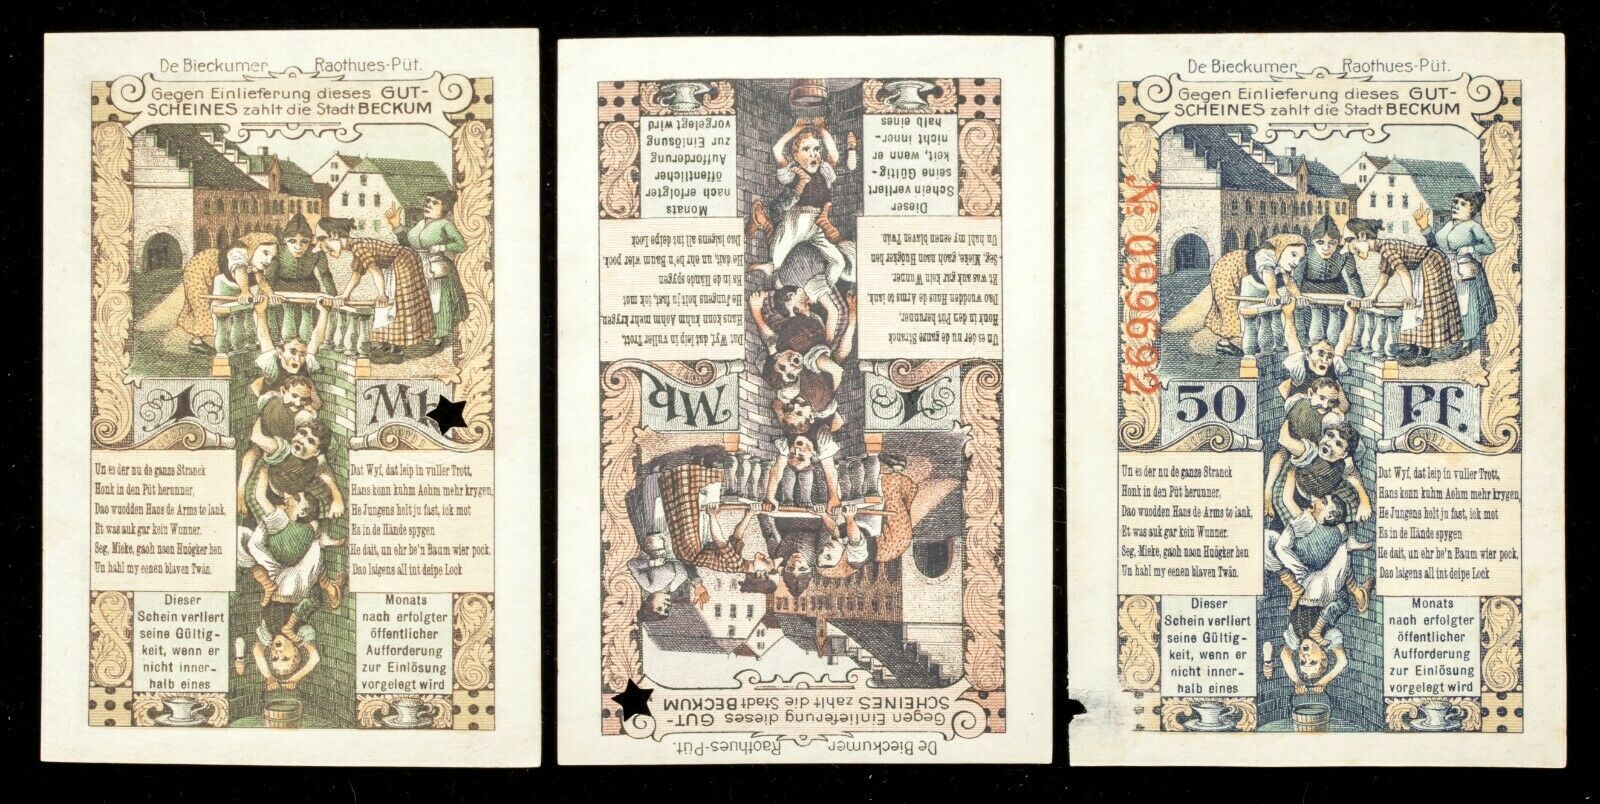 De Bieckumer Raothues-Püt.
Gegen Einlieferung dieses GUT-
SCHEINES zahlt die Stadt BECKUM
1 Mk
Un es der nu de ganze Stranck
Honk in den Püt herunner,
Dao wuodden Hans de Arms to lank,
Et was auk gar kein Wunner.
Seg, Mieke, gaoh naon Huögker hen
Un hahl my eenen blaven Twän.
Dat Wyf, dat leip in vuller Trott,
Hans konn kuhm Aohm mehr krygen,
He Jungens holt ju fast, iek mot
Es in de Hände spygen
He dait, un ehr he'n Baum wier pock,
Dao laigens all int deipe Lock
Dieser
Schein verliert
seine Gültig-
keit, wenn er
nicht inner-
halb eines
Monats
nach erfolgter
öffentlicher
Aufforderung
zur Einlösung
vorgelegt wird
De Bieckumer Raothues-Püt.
Gegen Einlieferung dieses GUT-
SCHEINES zahlt die Stadt BECKUM
1 Mk
Un es der nu de ganze Stranck
Honk in den Püt herunner,
Dao wuodden Hans de Arms to lank,
Et was auk gar kein Wunner.
Seg, Mieke, gaoh naon Huögker hen
Un hahl my eenen blaven Twän.
Dat Wyf, dat leip in vuller Trott,
Hans konn kuhm Aohm mehr krygen,
He Jungens holt ju fast, iek mot
Es in de Hände spygen
He dait, un ehr he'n Baum wier pock,
Dao laigens all int deipe Lock
Dieser
Schein verliert
seine Gültig-
keit, wenn er
nicht inner-
halb eines
Monats
nach erfolgter
öffentlicher
Aufforderung
zur Einlösung
vorgelegt wird
De Bieckumer Raothues-Püt.
Gegen Einlieferung dieses GUT-
SCHEINES zahlt die Stadt BECKUM
№ 099692
50 Pf.
Un es der nu de ganze Stranck
Honk in den Püt herunner,
Dao wuodden Hans de Arms to lank,
Et was auk gar kein Wunner.
Seg, Mieke, gaoh naon Huögker hen
Un hahl my eenen blaven Twän.
Dat Wyf, dat leip in vuller Trott,
Hans konn kuhm Aohm mehr krygen,
He Jungens holt ju fast, iek mot
Es in de Hände spygen
He dait, un ehr he'n Baum wier pock,
Dao laigens all int deipe Lock
Dieser
Schein verliert
seine Gültig-
keit, wenn er
nicht inner-
halb eines
Monats
nach erfolgter
öffentlicher
Aufforderung
zur Einlösung
vorgelegt wird